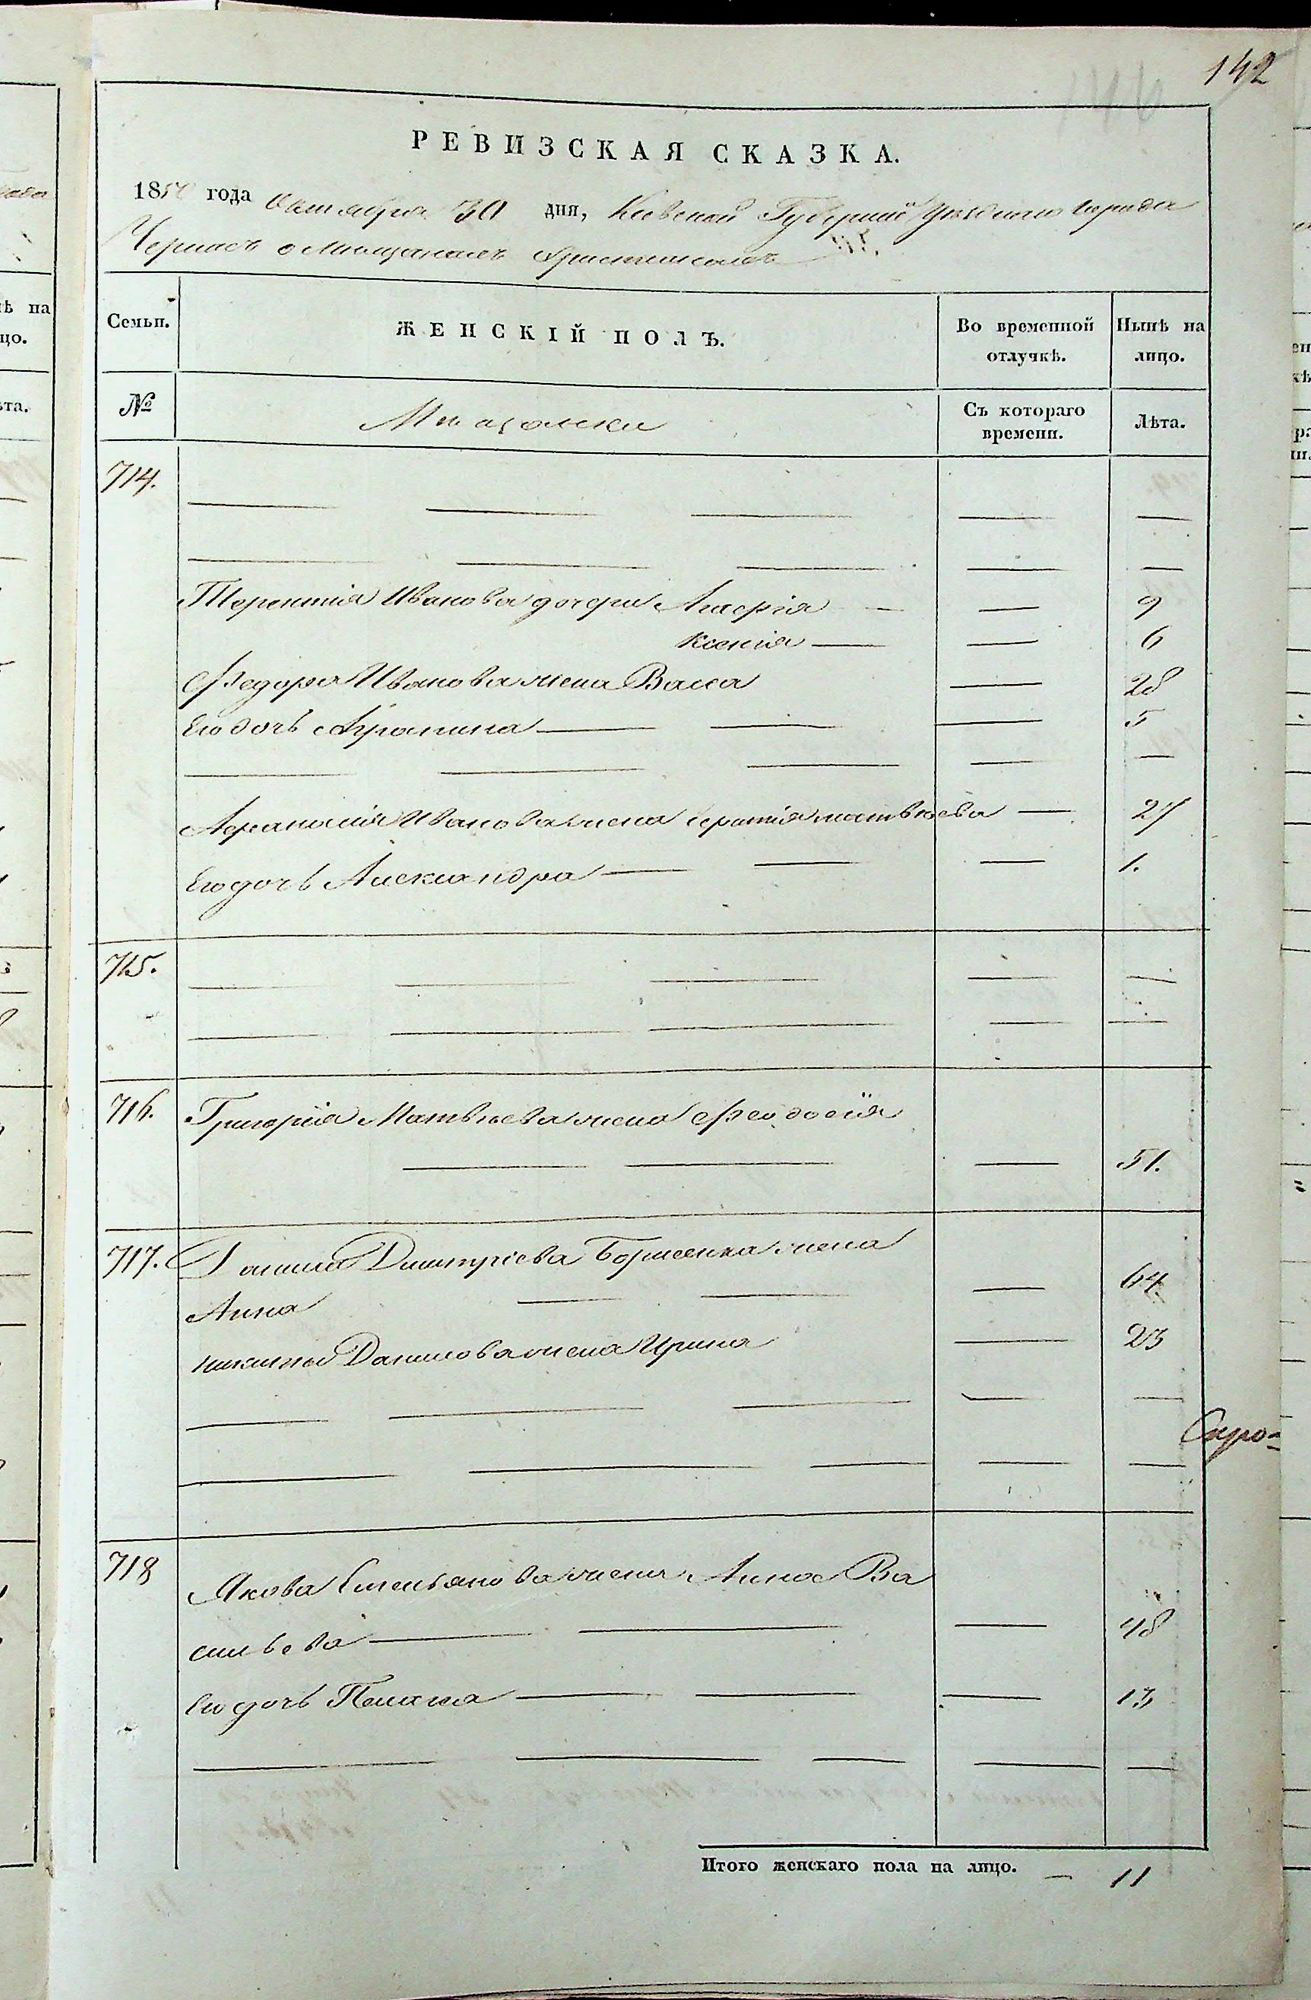 142
РЕВИЗСКАЯ СКАЗКА.
1850 года Октября 30 дня, Киевской Губернии Уезднаго города
Черкасъ о Мещанахъ Христианахъ
Семьи. ЖЕНСКІЙ ПОЛЪ. Во временной отлучкѣ. Нынѣ на лицо.
№ Мещанки Съ котораго времени. Лѣта.
714.
Терентія Иванова дочери Агафія 9
Ксенія 6
Федора Иванова жена Васса 28
Его дочь 5
Афанасія Иванова жена Матвѣева 27
Его дочь Александра 1.
715.
716. Григорія Матвѣева жена Феодосія
51.
717. Данила Дмитріева Борисенка жена
Анна 64
Никиты Данилова жена Ирина 23
Скро=
718 Якова Емельянова жена Анна Ва
сильева 48
Его дочь Пелагея 13
Итого женскаго пола на лицо. — 11